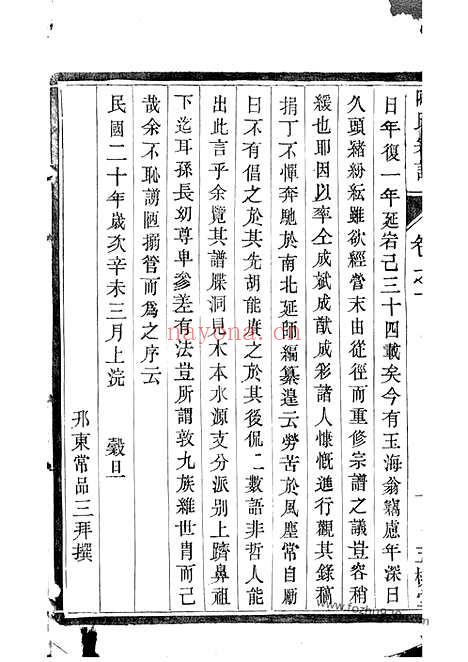 日年復一年延宕已三十四載矣今有玉海翁竊慮年深日
久頭緒紛紜雖欲經營末由從徑而重修宗譜之議豈容稍
緩也耶因以率仝成斌成猷成彩諸人慷慨進行觀其錄稿
捐丁不憚奔馳於南北延師編纂遑云勞苦於風塵常自勵
曰不有倡之於其先胡能賡之於其後侃二數語非哲人能
出此言乎余覽其譜牒洞見木本水源支分派别上躋鼻祖
下迄耳孫長幼尊卑參差有法豈所謂敦九族雜世胄而已
哉余不恥謭陋搦管而爲之序云
民國二十年歲次辛未三月上浣 穀旦
邗東常品三拜撰
nayona.cn
www.fozhu910.com